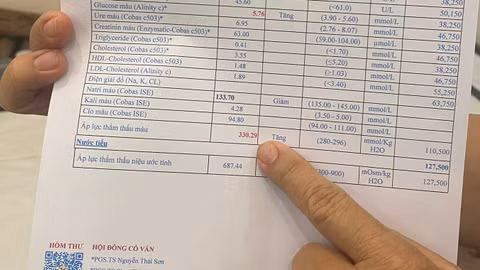 45.60 (<61.0) U/L 38,250
Glucose máu (Alinity c)* 5.76 Tăng (3.90 - 5.60) mmol/L
Ure máu (Cobas c503)* 6.95 (2.76 - 8.07) mmol/L
Creatinin máu (Enzymatic-Cobas c503)* 63.00 (59.00-104.00) µmol/L
Triglyceride (Cobas c503)* 0.41 (<1.70) mmol/L
Cholesterol (Cobas c503)* 3.55 (<5.20) mmol/L
HDL-Cholesterol (Alinity c) 1.48 (≥1.03) mmol/L
LDL-Cholesterol (Alinity c) 1.89 (<3.40) mmol/L 55,250
Điện giải đồ (Na, K, CL) 63,750
Natri máu (Cobas ISE) 133.70 Giảm (135.00 - 145.00) mmol/L
Kali máu (Cobas ISE) 4.28 (3.50 - 5.00) mmol/L
Clo máu (Cobas ISE) 94.80 (94.00 - 111.00) mmol/L
Áp lực thẩm thấu máu 330.29 Tăng (280-296) mmol/Kg H2O 110,500
Nước tiểu 127,500
Áp lực thẩm thấu niệu ước tính 687.44 300-900) mOsm/kg H2O 127,500
HÒM THƯ HỘI ĐỒNG CỐ VẤN
*PGS.TS Nguyễn Thái Sơn